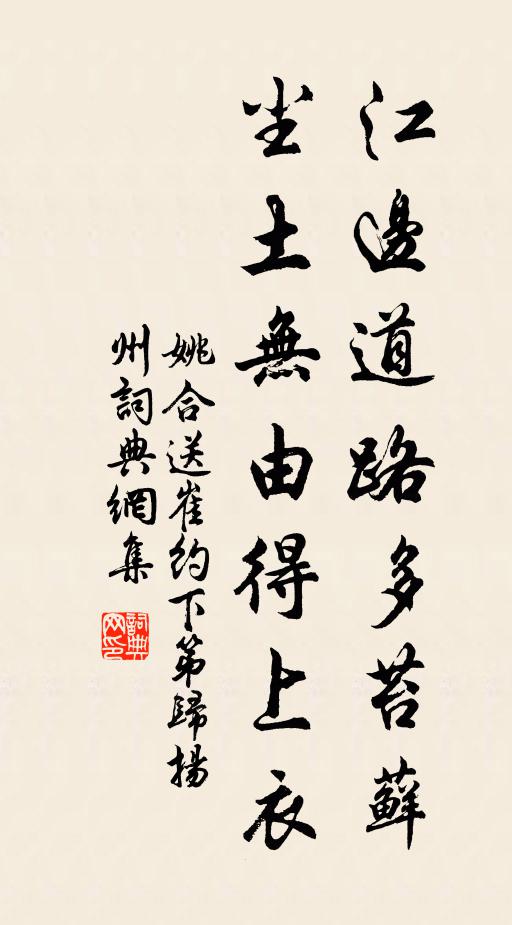 江邊道路多苔蘚
尘土無由得上衣
姚合送崔約下第歸揚
州詞典網集
詞典
网印